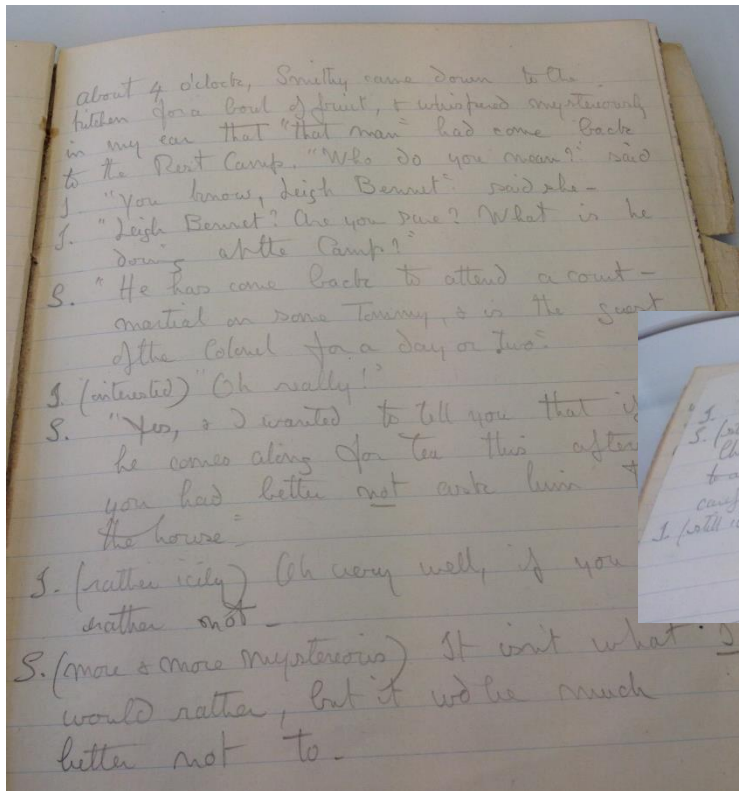 about 4 o'clock, Smithy came down to the
kitchen for a bowl of fruit, & whispered mysteriously
in my ear that "that man" had come back
to the Rest Camp. "Who do you mean?" said
I "You know, Leigh Bennet" said she -
I. "Leigh Bennet? Are you sure? What is he
doing at the Camp?"
S. "He has come back to attend a court-
martial on some Tommy, & is the guest
of the Colonel for a day or two"
I. (interested) "Oh really!"
S. "Yes, & I wanted to tell you that if
he comes along for tea this after
you had better not ask him
the house"
I. (rather icily) Oh very well, if you
rather not -
S. (more & more mysterious) It isn't what I
would rather, but it wd be much
better not to -
I.
S.
to a
I. (still